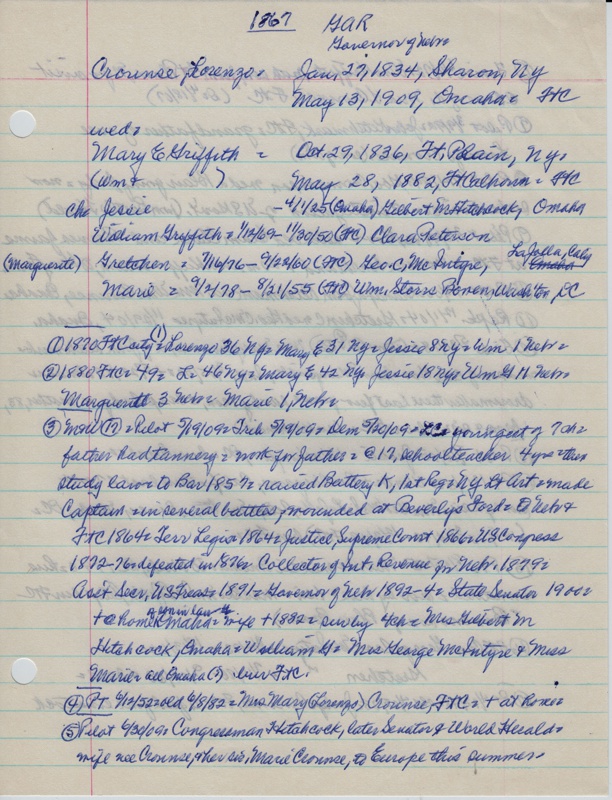 1867 GAR
Governor of Nebr
Crounse, Lorenzo = Jan. 27, 1834, Sharon, Ny
May 13, 1909, Omaha = FtC
wed =
Mary E Griffith = Oct. 29, 1836, Ft. Plain, Ny.
(Wm + ) May 28, 1882, Ft Calhoun = FtC
Ch. Jessie - 4/1/25 (Omaha) Gilbert M Hitchcock, Omaha
William Griffith = - 11/30/50 (FtC) Clara Peterson
LaJolla, Calif
(Marguerite) Gretchen = 7/16/76 - 9/28/60 (FtC) Geo. C, McIntyre, Omaha
Marie = 9/2/78 - 8/21/55 (FtC) Wm. Storrs Bowen, Wash'ton, DC
① 1870 FtC city = (1) Lorenzo 36 Ny = Mary E 31 Ny = Jessie 8 Ny = Wm 1 Nebr =
② 1880 FtC = 49 = L = 46 Ny = Mary E 42 Ny Jessie 18 Ny = Wm G 11 Nebr
Marguerett 3 Nebr = Marie 1, Nebr =
③ = Pilot 5/19/09 = Trib 5/19/09 = Dem 5/20/09 = youngest of 7 ch =
father had tannery = work for father = @ 17, schoolteacher 4 yrs = then
study law = to Bar 1857 = raised Battery K, 1st Reg = Ny Lt Art = made
Captain = in several battles, wounded at Beverly's Ford = Nebr &
FtC 1864 = Terr Legis = 1864 = Justice, Supreme Court 1866 = US Congress
1872-76 = defeated in 1876 = Collector of Int. Revenue for Nebr. 1879 =
Asst Secr, US Treas = 1891 = Governor of Nebr 1892-4 = State Senator 1900 =
+ @ home Omaha = wife + 1882 = surv by 4 ch = Mrs Gilbert M
Hitchcock, Omaha = William G = Mrs George McIntyre & Miss
Marie = all Omaha (?) bur FtC.
④ Pt 6/12/52 = old 6/8/82 = Mrs Mary (Lorenzo) Crounse, FtC = + at
⑤ Pilot 6/30/09 = Congressman Hitchcock, later Senator & World Herald =
wife nee Crounse, & her sis, Marie Crounse, to Europe this summer -